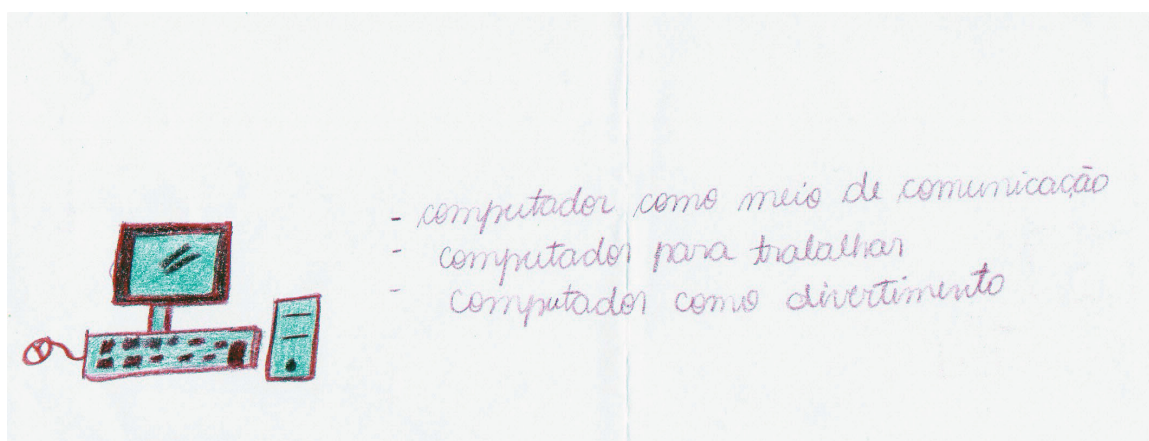 - computador como meio de comunicação
- computador para trabalhar
- computador como divertimento